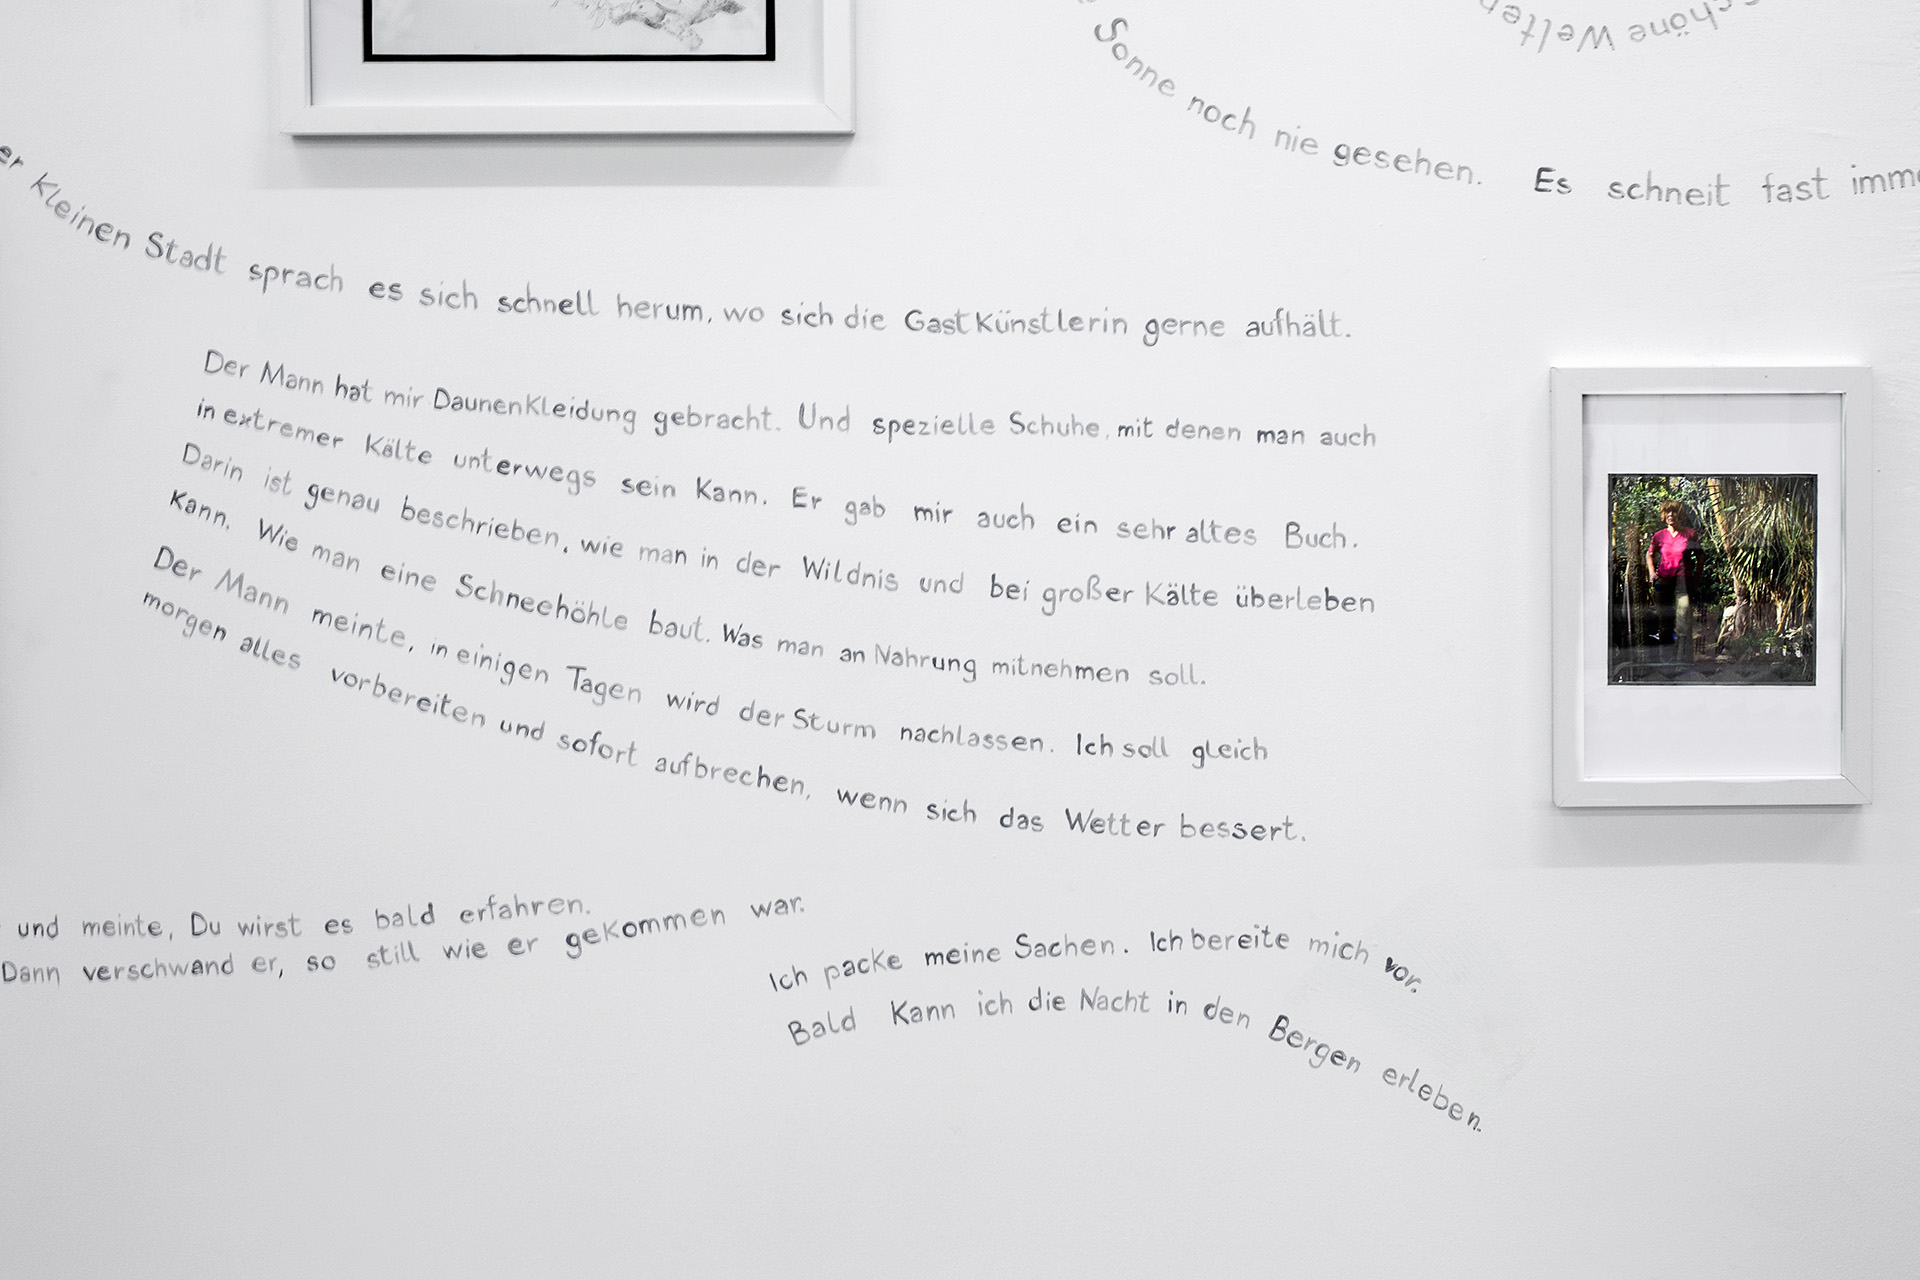 schöne Welten
Sonne noch nie gesehen. Es schneit fast imme
er kleinen Stadt sprach es sich schnell herum, wo sich die Gastkünstlerin gerne aufhält.
Der Mann hat mir Daunenkleidung gebracht. Und spezielle Schuhe, mit denen man auch
in extremer Kälte unterwegs sein kann. Er gab mir auch ein sehr altes Buch.
Darin ist genau beschrieben, wie man in der Wildnis und bei großer Kälte überleben
kann. Wie man eine Schneehöhle baut. Was man an Nahrung mitnehmen soll.
Der Mann meinte, in einigen Tagen wird der Sturm nachlassen. Ich soll gleich
morgen alles vorbereiten und sofort aufbrechen, wenn sich das Wetter bessert.
und meinte, Du wirst es bald erfahren.
Dann verschwand er, so still wie er gekommen war.
Ich packe meine Sachen. Ich bereite mich vor.
Bald kann ich die Nacht in den Bergen erleben.